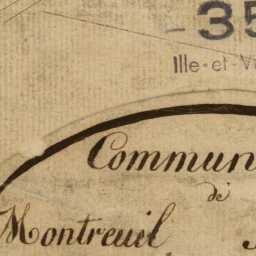 - 35
Ille-et-Vi
Commun
de
Montreuil